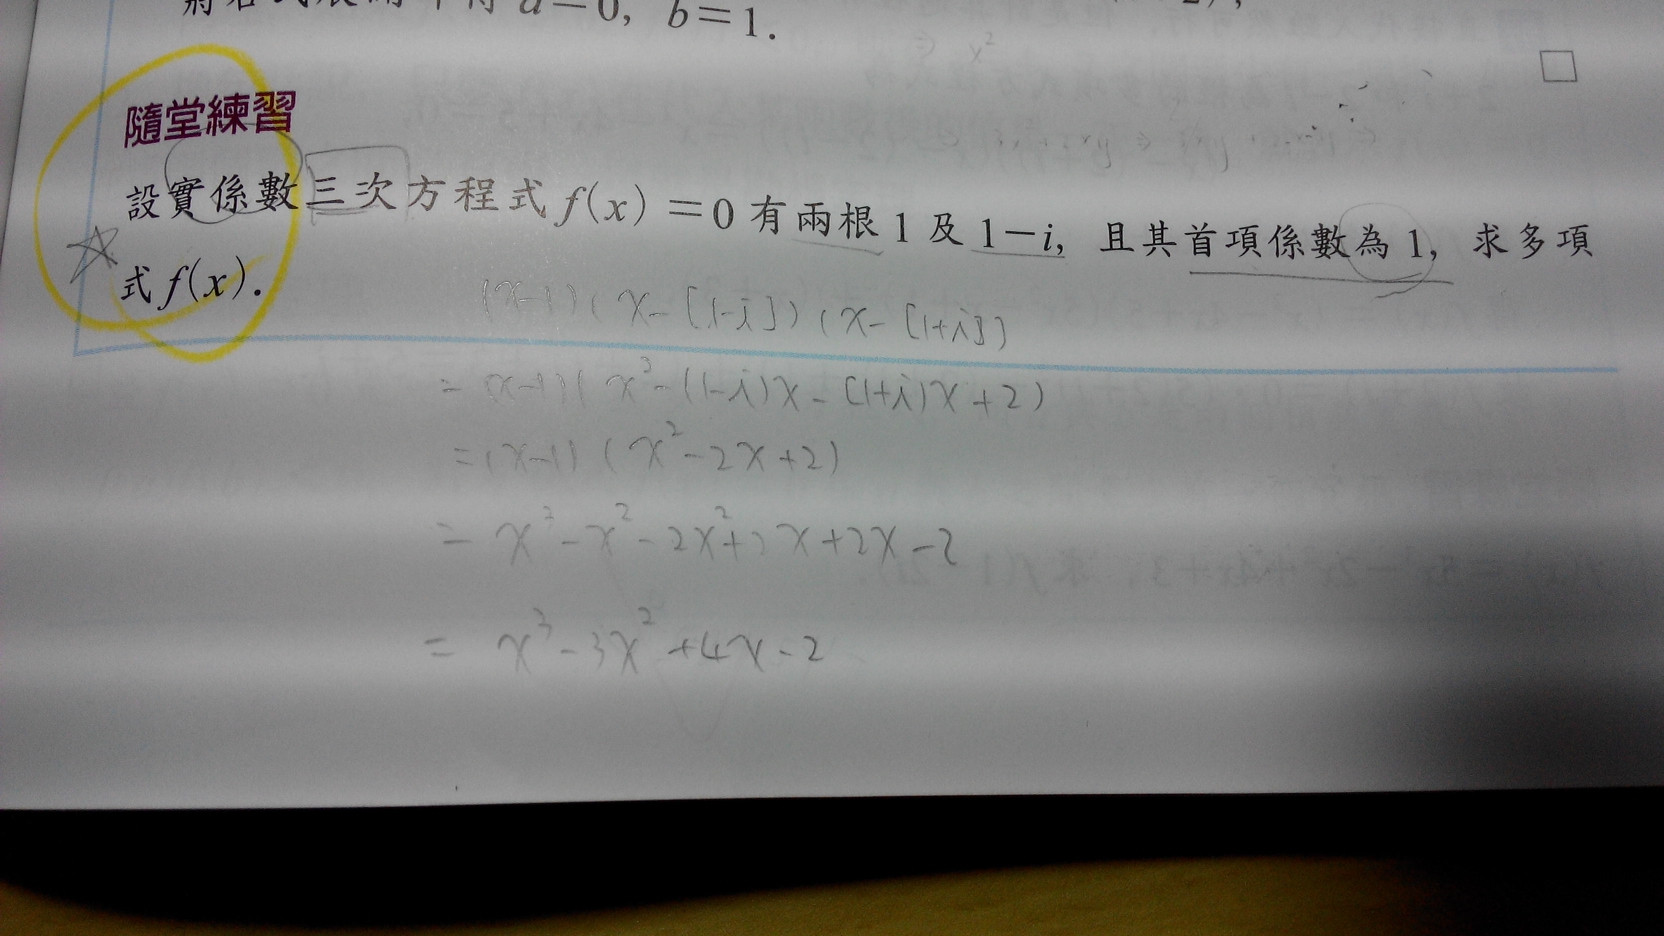 a=0, b=1.
隨堂練習
設實係數三次方程式 f(x)=0 有兩根 1 及 1-i, 且其首項係數為 1, 求多項
式 f(x).
(x-1)(x-[1-i])(x-[1+i])
= (x-1)(x³-(1-i)x-(1+i)x+2)
=(x-1)(x²-2x+2)
= x³-x²-2x²+2x+2x-2
= x³-3x²+4x-2